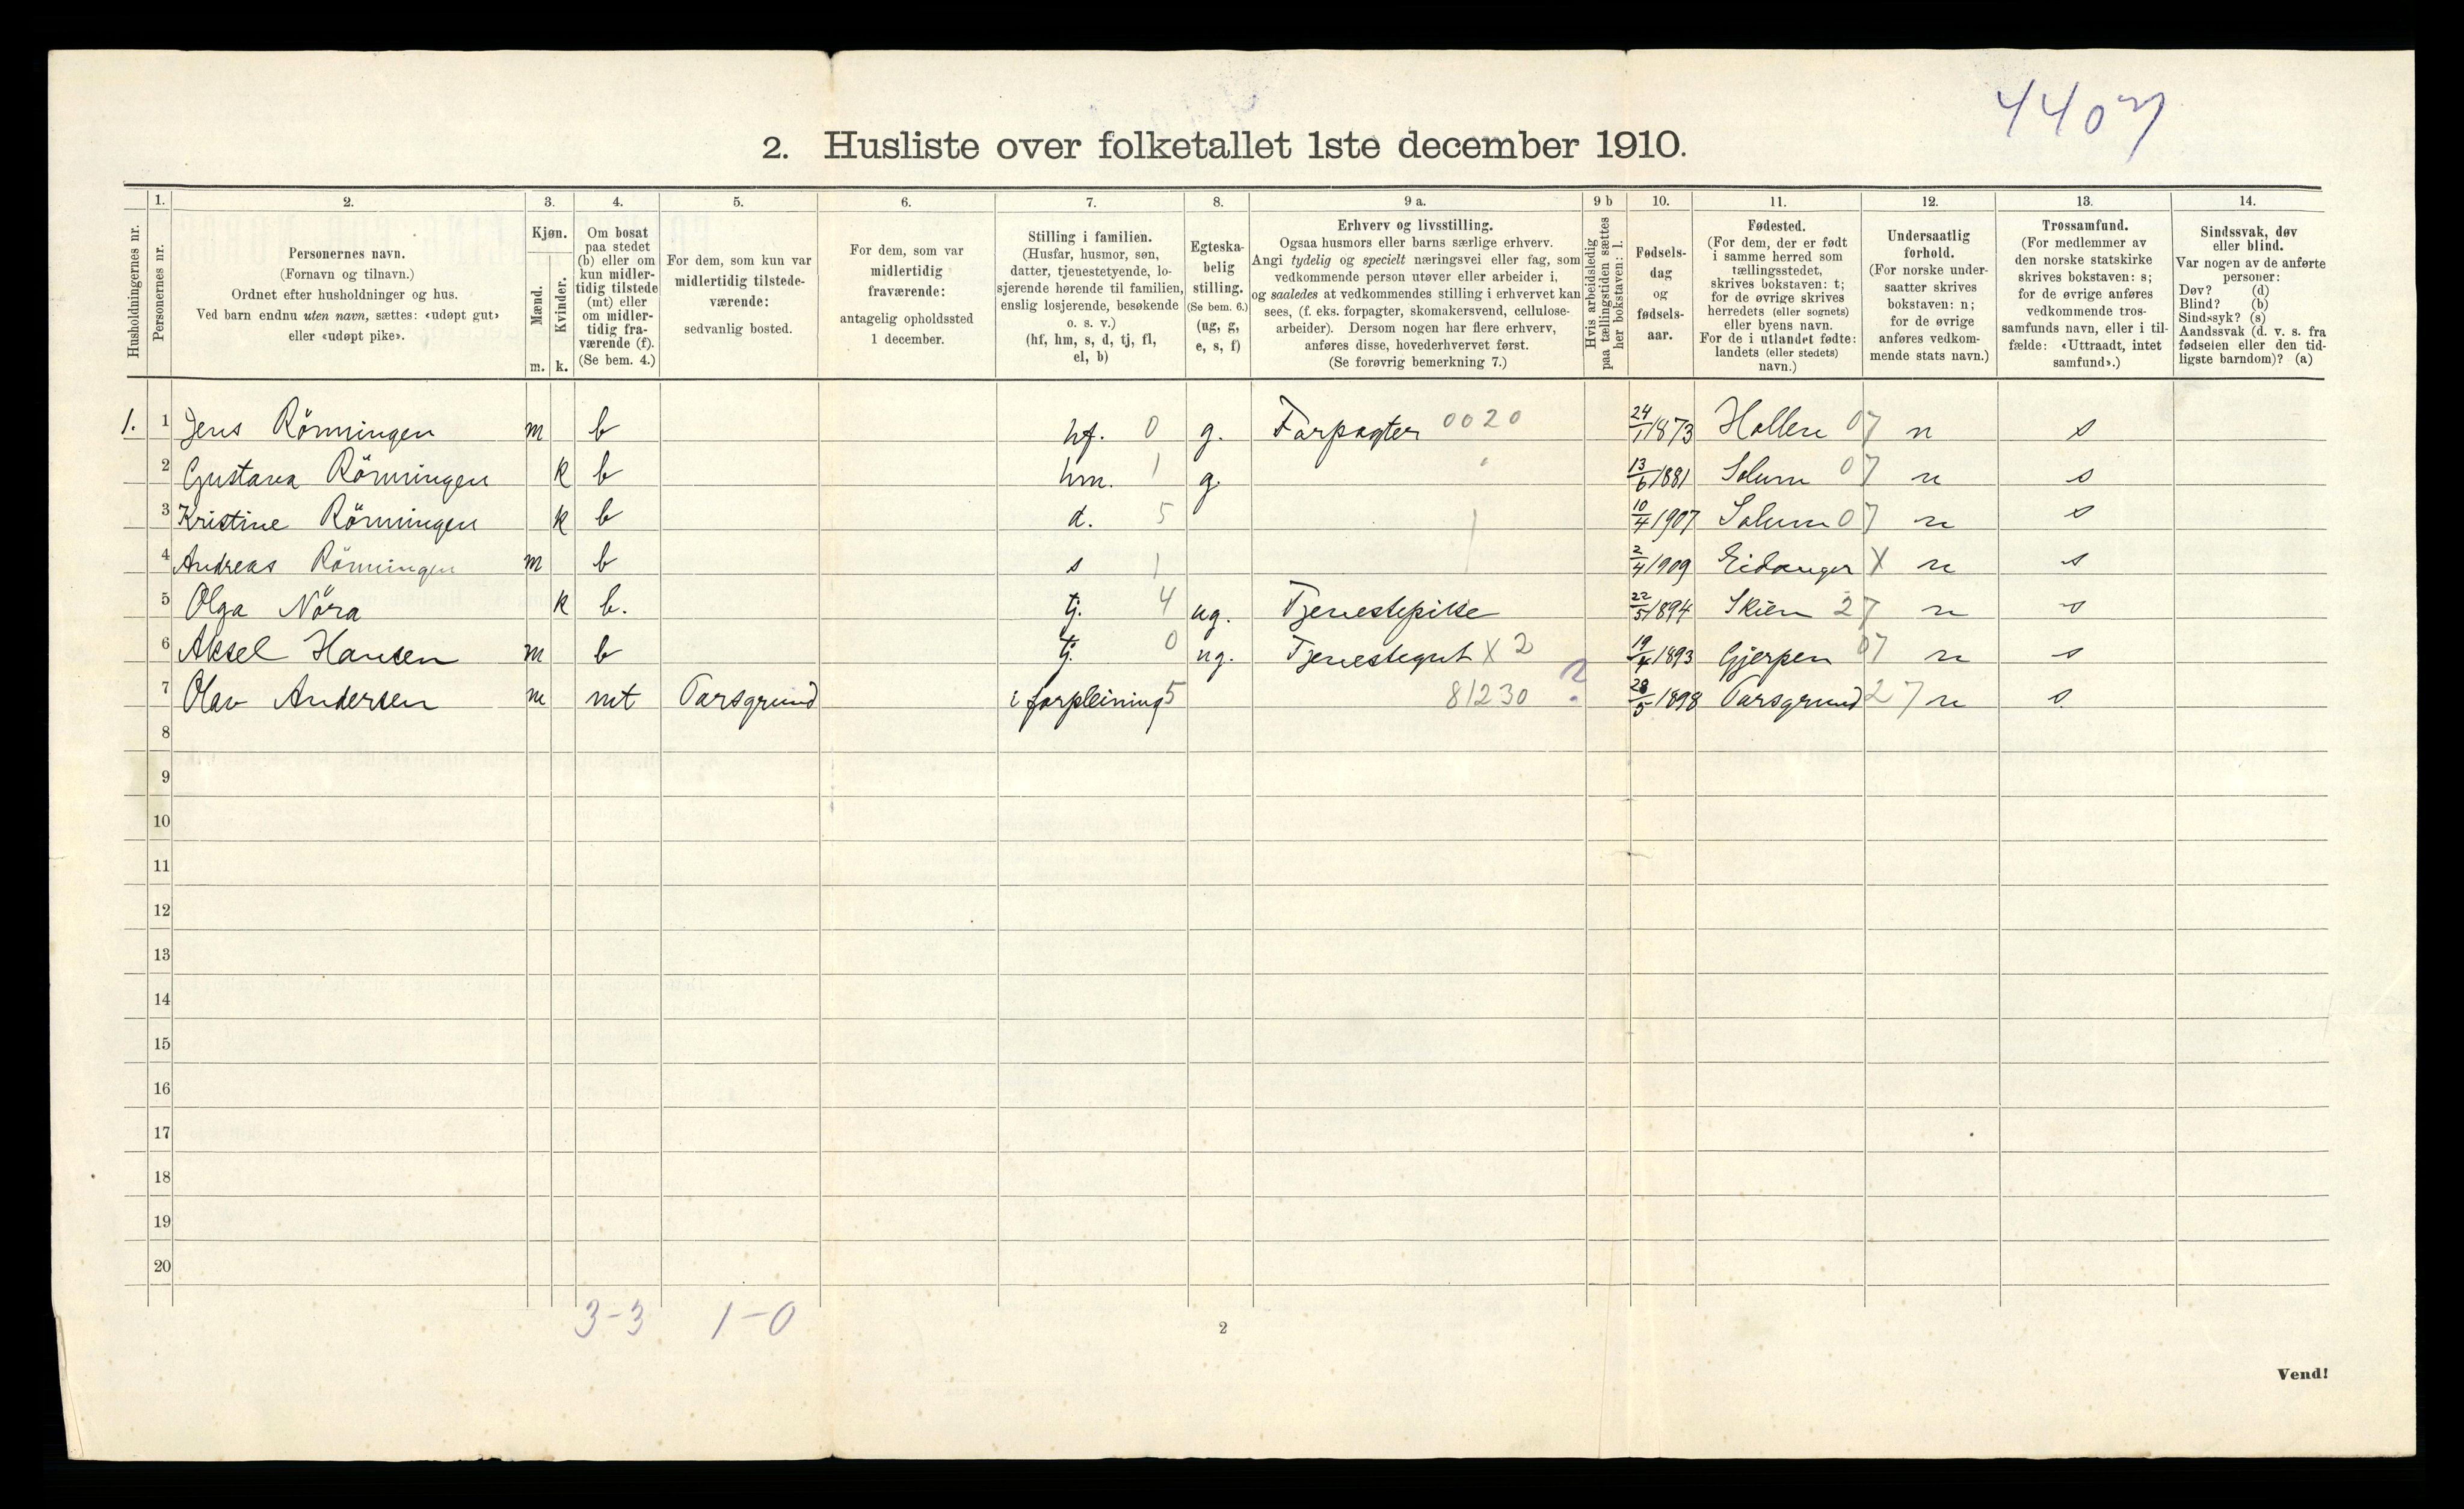 4407
2. Husliste over folketallet 1ste december 1910.
1. 2. 3. 4. 5. 6. 7. 8. 9 a. 9 b 10. 11. 12. 13. 14.
Husholdningernes nr.
Personernes nr.
Personernes navn.
(Fornavn og tilnavn.)
Ordnet efter husholdninger og hus.
Ved barn endnu uten navn, sættes: «udøpt gut»
eller «udøpt pike».
Kjøn.
Mænd.
Kvinder.
m. k.
Om bosat
paa stedet
(b) eller om
kun midler-
tidig tilstede
(mt) eller
om midler-
tidig fra-
værende (f).
(Se bem. 4.)
For dem, som kun var
midlertidig tilstede-
værende:
sedvanlig bosted.
For dem, som var
midlertidig
fraværende:
antagelig opholdssted
1 december.
Stilling i familien.
(Husfar, husmor, søn,
datter, tjenestetyende, lo-
sjerende hørende til familien,
enslig losjerende, besøkende
o. s. v.)
(hf, hm, s, d, tj, fl,
el, b)
Egteska-
belig
stilling.
(Se bem. 6.)
(ug, g,
e, s, f)
Erhverv og livsstilling.
Ogsaa husmors eller barns særlige erhverv.
Angi tydelig og specielt næringsvei eller fag, som
vedkommende person utøver eller arbeider i,
og saaledes at vedkommendes stilling i erhvervet kan
sees, (f. eks. forpagter, skomakersvend, cellulose-
arbeider). Dersom nogen har flere erhverv,
anføres disse, hovederhvervet først.
(Se forøvrig bemerkning 7.)
Hvis arbeidsledig
paa tællingstiden sættes
her bokstaven: l.
Fødsels-
dag
og
fødsels-
aar.
Fødested.
(For dem, der er født
i samme herred som
tællingsstedet,
skrives bokstaven: t;
for de øvrige skrives
herredets (eller sognets)
eller byens navn.
For de i utlandet fødte:
landets (eller stedets)
navn.)
Undersaatlig
forhold.
(For norske under-
saatter skrives
bokstaven: n;
for de øvrige
anføres vedkom-
mende stats navn.)
Trossamfund.
(For medlemmer av
den norske statskirke
skrives bokstaven: s;
for de øvrige anføres
vedkommende tros-
samfunds navn, eller i til-
fælde: «Uttraadt, intet
samfund».)
Sindssvak, døv
eller blind.
Var nogen av de anførte
personer:
Døv? (d)
Blind? (b)
Sindssyk? (s)
Aandssvak (d. v. s. fra
fødselen eller den tid-
ligste barndom)? (a)
1. 1 Jens Rönningen m b hf. 0 g. Forpagter 0020 24/1 1873 Hollen 07 n s
2 Gustava Rönningen k b hm. 1 g. 13/6 1881 Solum 07 n s
3 Kristine Rönningen k b d. 5 10/4 1907 Solum 07 n s
4 Andreas Rönningen m b s 1 2/4 1909 Eidanger X n s
5 Olga Nöra k b. tj. 4 ug. Tjenestepike 22/5 1894 Skien 27 n s
6 Aksel Hansen m b tj. 0 ug. Tjenestegut X 2 19/4 1893 Gjerpen 07 n s
7 Olav Andersen m mt Porsgrund i forpleining 5 81230 ? 28/5 1898 Porsgrund 27 n s.
8
9
10
11
12
13
14
15
16
17
18
19
20
3-3 1-0
2
Vend!